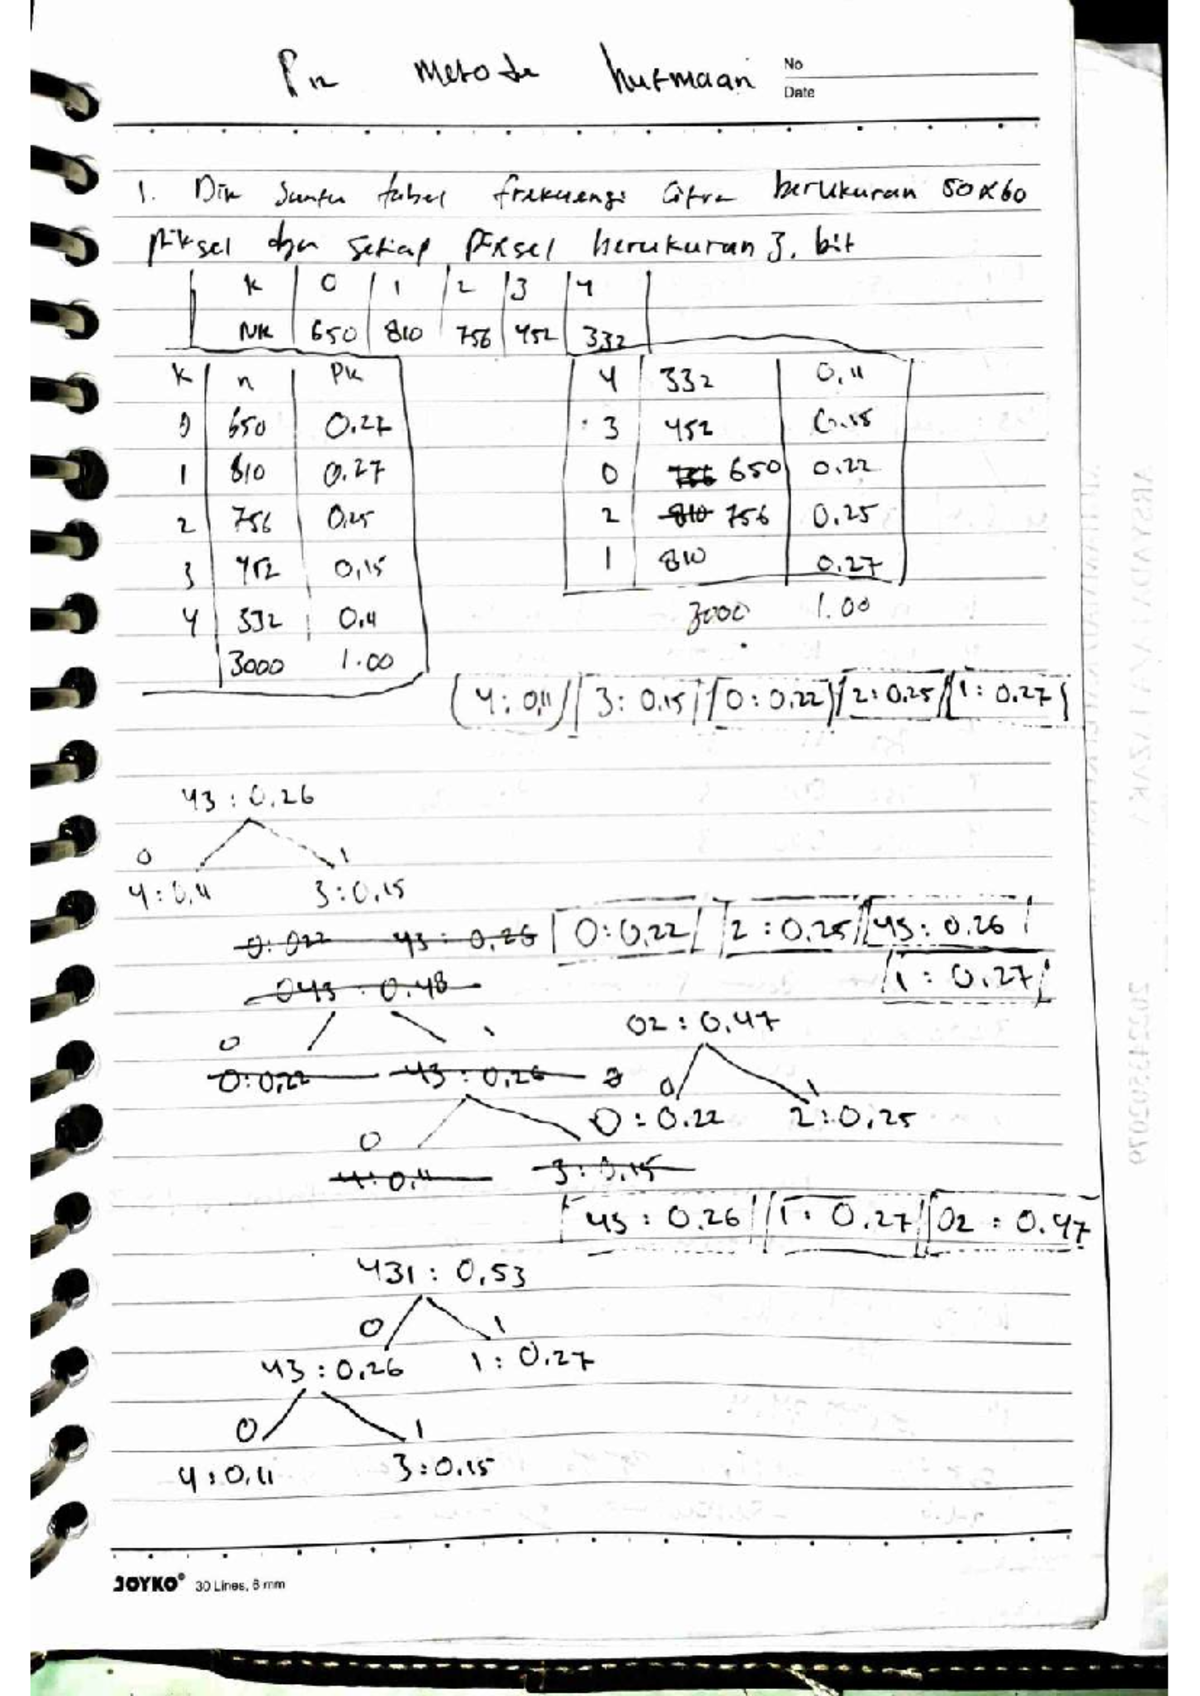 No
Date
PR Metode hufmaan
1. Dik Suatu tabel frekuensi Citra berukuran 50x60
piksel dgn setiap piksel berukuran 3. bit
K 0 1 2 3 4
NK 650 810 756 452 332
K n PK
0 650 0.27
1 810 0.27
2 756 0.25
3 452 0,15
4 332 0.11
3000 1.00
4 332 0.11
3 452 0.15
0 756 650 0.22
2 810 756 0.25
1 810 0.27
3000 1.00
4:0,11 3:0.15 0:0.22 2:0.25 1:0.27
43:0.26
0 1
4:0.11 3:0.15
0:022 43:0,26 0:0,22 2:0.25 43:0.26
1:0.27
043:0.48
0 1
0:0,22 43:0.26
0
4:0.11 3:0.15
02:0.47
0 1
0:0.22 2:0.25
43:0.26 1:0.27 02:0.47
431:0,53
0 1
43:0.26 1:0.27
0 1
4:0.11 3:0.15
JOYKO® 30 Lines, 8 mm
ARSYAD
202243502079